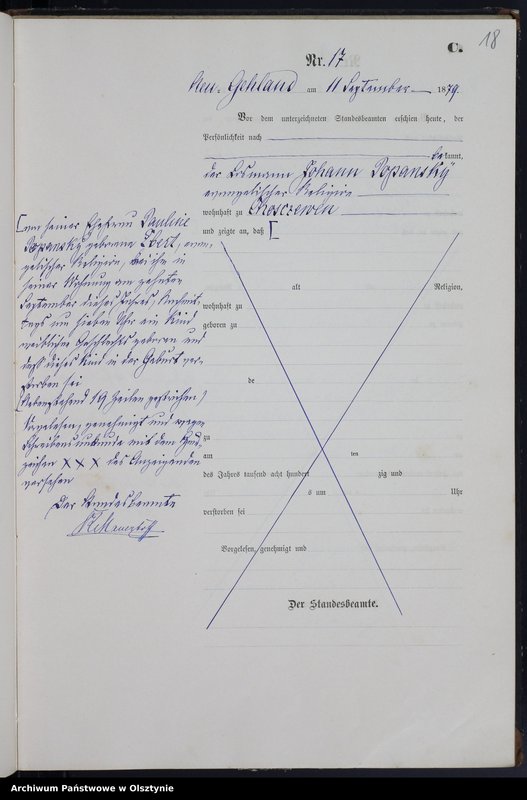 C.
18
Nr. 17
Neu-Gehland am 11 September 1879.
Vor dem unterzeichneten Standesbeamten erschien heute, der
Persönlichkeit nach
bekannt,
der Losmann Johann Popansky
evangelischer Religion
wohnhaft zu Choszewen
und zeigte an, daß [
[von seiner Ehefrau Pauline
Popansky geborene Ebert, evan-
gelischer Religion, bei ihm in
seiner Wohnung am zehnten
September dieses Jahres, Nachmit-
tags um sieben Uhr ein Kind
weiblichen Geschlechts geboren und
daß dieses Kind in der Geburt ver-
storben sei
Nebenstehend 19 Zeilen gestrichen
Vorgelesen, genehmigt und wegen
Schreibensunkunde mit dem Hand-
zeichen XXX des Anzeigenden
versehen
Der Standesbeamte
alt Religion,
wohnhaft zu
geboren zu
de
zu
am ten
des Jahres tausend acht hundert zig und
s um Uhr
verstorben sei
Vorgelesen, genehmigt und
Der Standesbeamte.
Archiwum Państwowe w Olsztynie